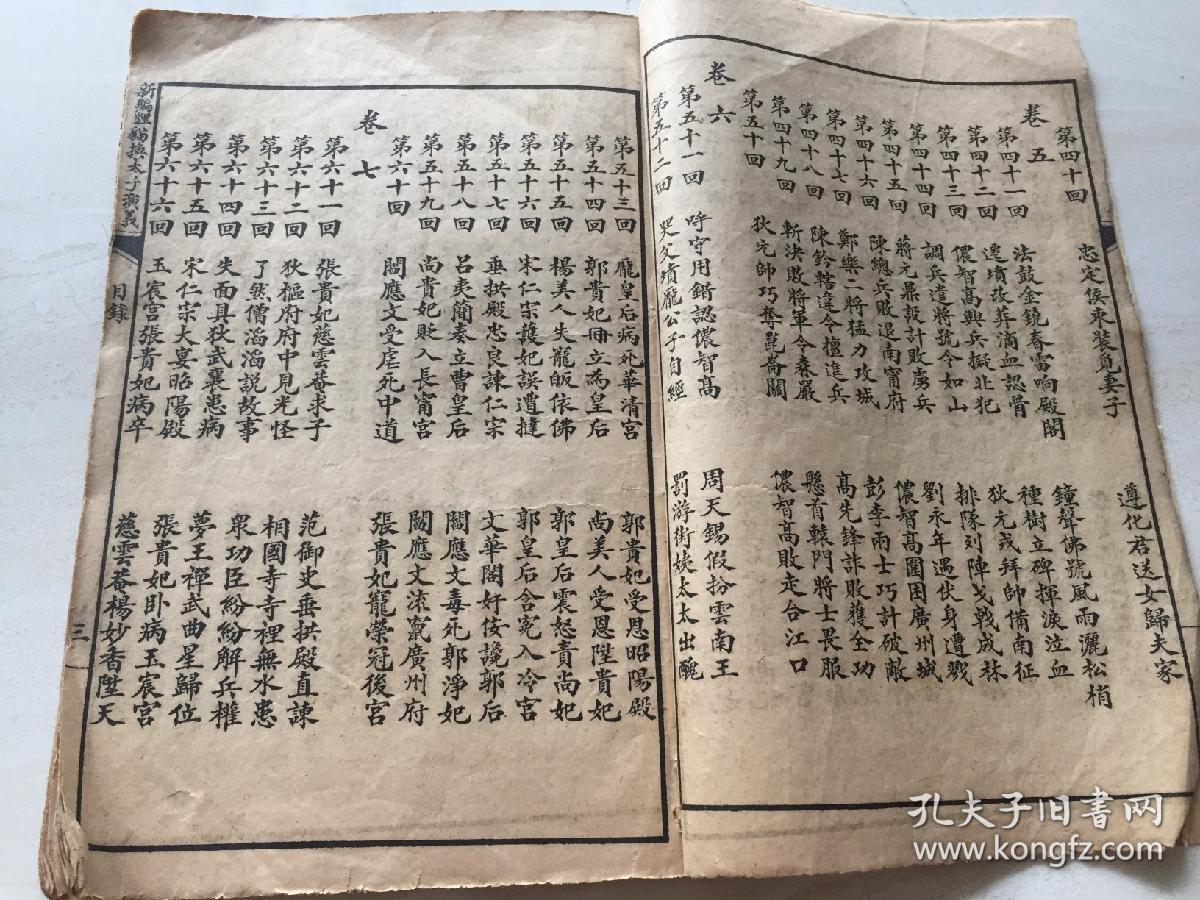 第四十回 忠定侯束裝覓妻子 遵化君送女歸夫家
卷五
第四十一回 法鼓金鏡春雷响殿閣 鐘聲佛號風雨灑松梢
第四十二回 遷墳改葬滴血認骨 種樹立碑揮淚泣血
第四十三回 儂智高興兵擬北犯 狄元戎拜帥備南征
第四十四回 調兵遣將號令如山 排隊列陣戈戟成林
第四十五回 蔣元鼎設計敗虜兵 劉永年遇伏身遭戮
第四十六回 陳總兵敗退南甯府 儂智高圍困廣州城
第四十七回 鄭樂二將猛力攻城 彭李兩士巧計破敵
第四十八回 陳鈐轄違令擅進兵 高先鋒詐敗獲全功
第四十九回 斬決敗將軍令森嚴 懸首轅門將士畏服
第五十回 狄元帥巧奪崑崙關 儂智高敗走合江口
卷六
第五十一回 呼守用錯認儂智高 周天錫假扮雲南王
第五十二回 哭父墳龐公子自經 罰游街姨太太出醜
第五十三回 龐皇后病死華清宮 郭貴妃受恩昭陽殿
第五十四回 郭貴妃冊立為皇后 尚美人受恩陞貴妃
第五十五回 楊美人失寵皈依佛 郭皇后震怒責尚妃
第五十六回 宋仁宗護妃誤遭撻 郭皇后含冤入冷宮
第五十七回 垂拱殿忠良諫仁宗 文華閣奸佞讒郭后
第五十八回 呂夷簡奏立曹皇后 閻應文毒死郭淨妃
第五十九回 尚貴妃貶入長甯宮 閻應文流竄廣州府
第六十回 閻應文受虐死中道 張貴妃寵榮冠後宮
卷七
第六十一回 張貴妃慈雲菴求子 范御史垂拱殿直諫
第六十二回 狄樞府府中見光怪 相國寺寺裡無水患
第六十三回 了然僧滔滔說故事 眾功臣紛紛解兵權
第六十四回 失面具狄武襄患病 夢王禪武曲星歸位
第六十五回 宋仁宗大宴昭陽殿 張貴妃卧病玉宸宮
第六十六回 玉宸宮張貴妃病卒 慈雲菴楊妙香陞天
新編狸貓換太子演義
目錄
三
孔夫子旧书网
www.kongfz.com